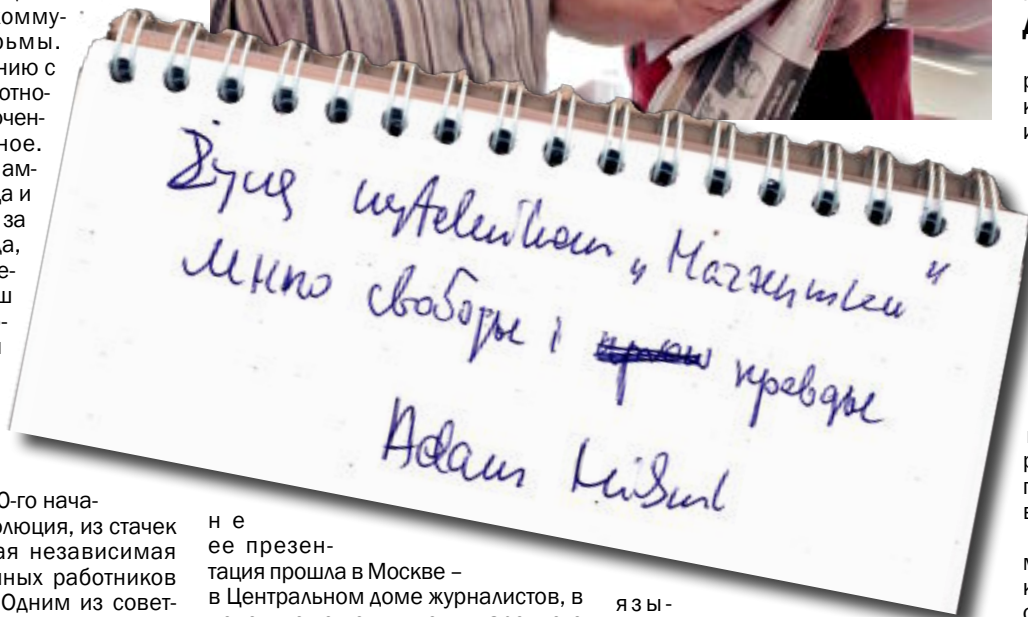 комму-
рьмы.
нию с
отно-
очен-
ное.
ам-
да и
за
да,
е-
ш
Życzę czytelnikom
Много свободы і правды
Adam Michnik
0-го нача-
олюция, из стачек
ая независимая
нных работников
Одним из совет-
н е
ее презен-
тация прошла в Москве –
в Центральном доме журналистов, в
язы-